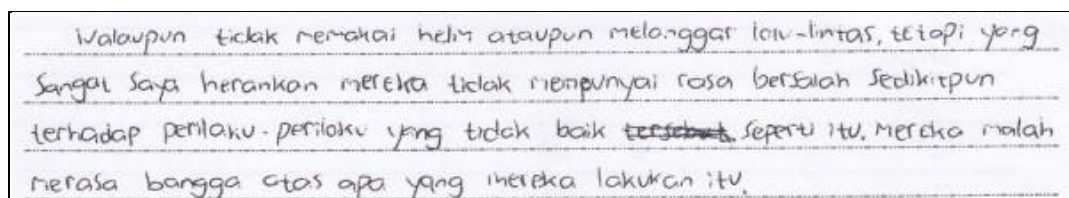 Walaupun tidak memakai helm ataupun melanggar lalu-lintas, tetapi yang
sangat saya herankan mereka tidak mempunyai rasa bersalah sedikitpun
terhadap perilaku-perilaku yang tidak baik tersebut seperti itu. Mereka malah
merasa bangga atas apa yang mereka lakukan itu.